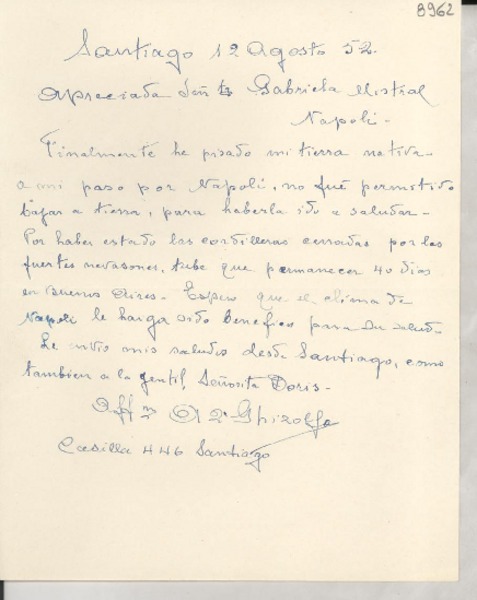 8962
Santiago 12 Agosto 52.
Apreciada Señta Gabriela Mistral
Napoli.
Finalmente he pisado mi tierra nativa.
a mi paso por Napoli, no fué permetido
bajar a tierra, para haberla ido a saludar.
Por haber estado las cordilleras cerradas por las
fuertes nevasones, tube que permanecer 40 dias
en Buenos Aires. Espero que el clima de
Napoli le haiga sido benefico para su salud.
Le envio mis saludos desde Santiago, como
tambien a la gentil Señorita Doris.
Casilla 446 Santiago